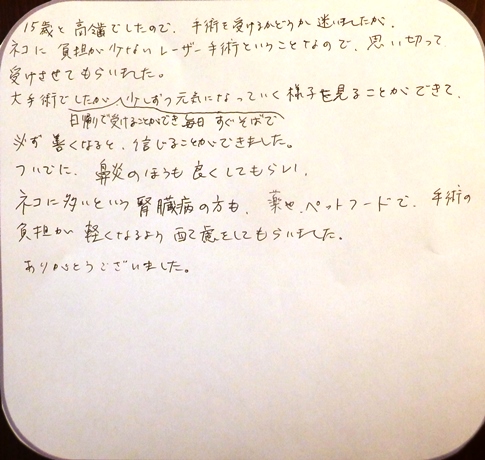 15歳と高齢でしたので、手術を受けるかどうか迷いましたが、
ネコに負担が少ないレーザー手術ということなので、思い切って
受けさせてもらいました。
大手術でしたが、少しずつ元気になっていく様子を見ることができて、
日帰りで受けることができ毎日すぐそばで
必ず善くなると、信じることができました。
ついでに、鼻炎のほうも良くしてもらい、
ネコに多いという腎臓病の方も、薬や、ペットフードで、手術の
負担が軽くなるよう配慮をしてもらいました。
ありがとうございました。